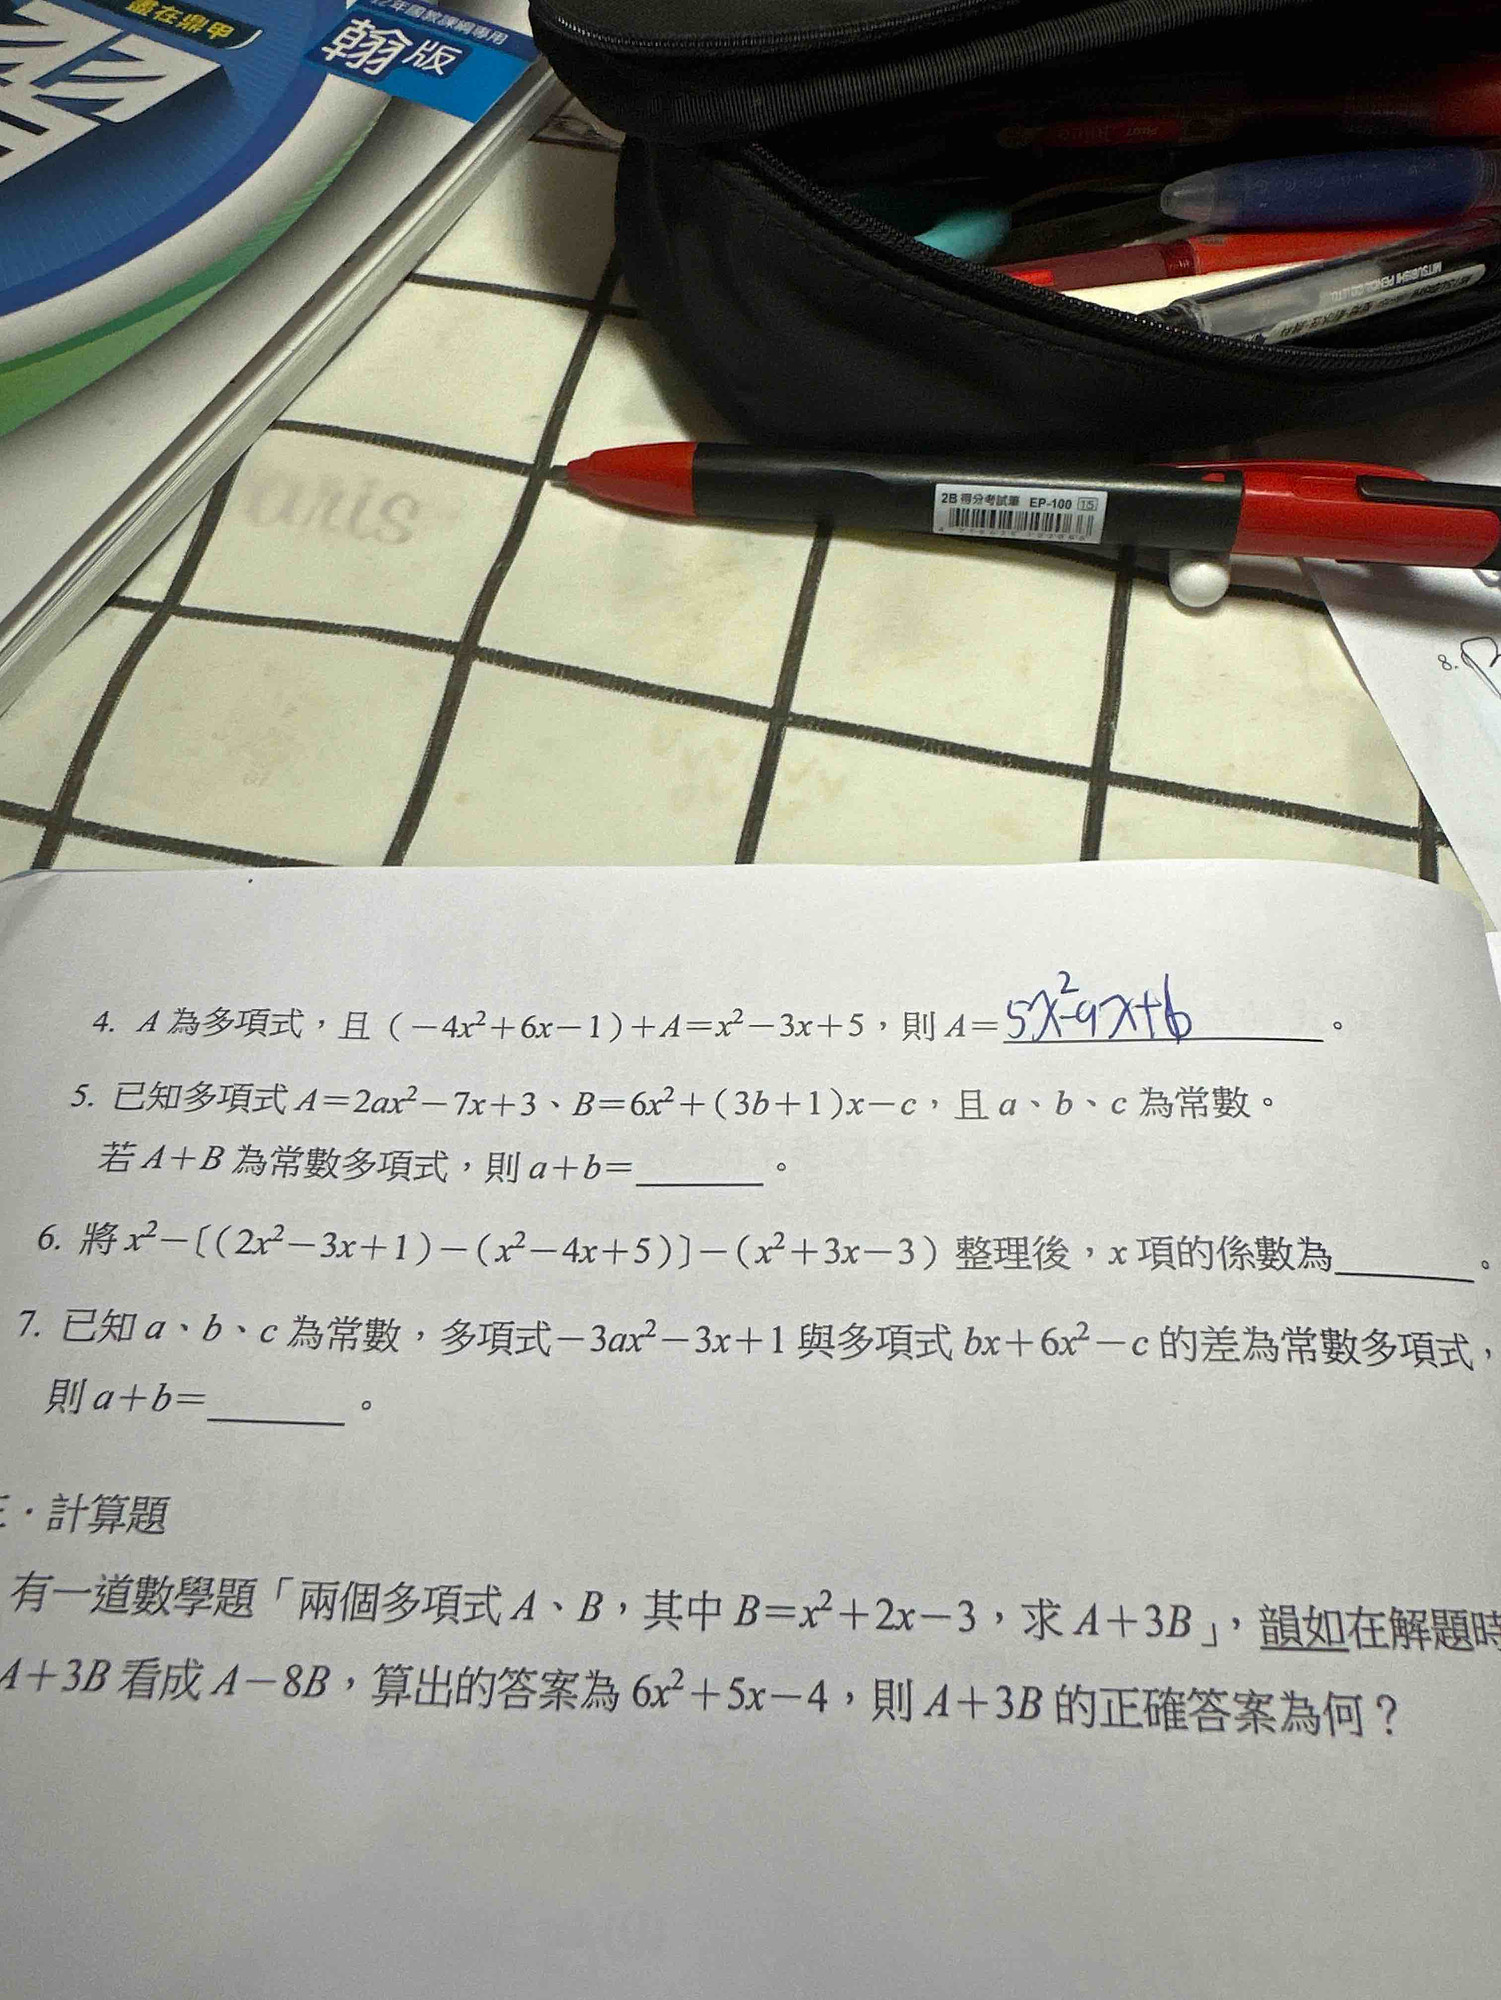 盡在鼎甲
12年國教課綱專用
翰版
MITSUBISHI PENCIL CO., LTD.
2B 得分考試筆 EP-100 15
8.
4. A 為多項式，且（−4x²+6x−1）+A=x²−3x+5，則 A=5x²-9x+6。
5. 已知多項式 A=2ax²−7x+3、B=6x²+（3b+1）x−c，且 a、b、c 為常數。
若 A+B 為常數多項式，則 a+b=______。
6. 將 x²−〔（2x²−3x+1）−（x²−4x+5）〕−（x²+3x−3）整理後，x 項的係數為______。
7. 已知 a、b、c 為常數，多項式−3ax²−3x+1 與多項式 bx+6x²−c 的差為常數多項式，
則 a+b=______。
三．計算題
有一道數學題「兩個多項式 A、B，其中 B=x²+2x−3，求 A+3B」，韻如在解題時
A+3B 看成 A−8B，算出的答案為 6x²+5x−4，則 A+3B 的正確答案為何？